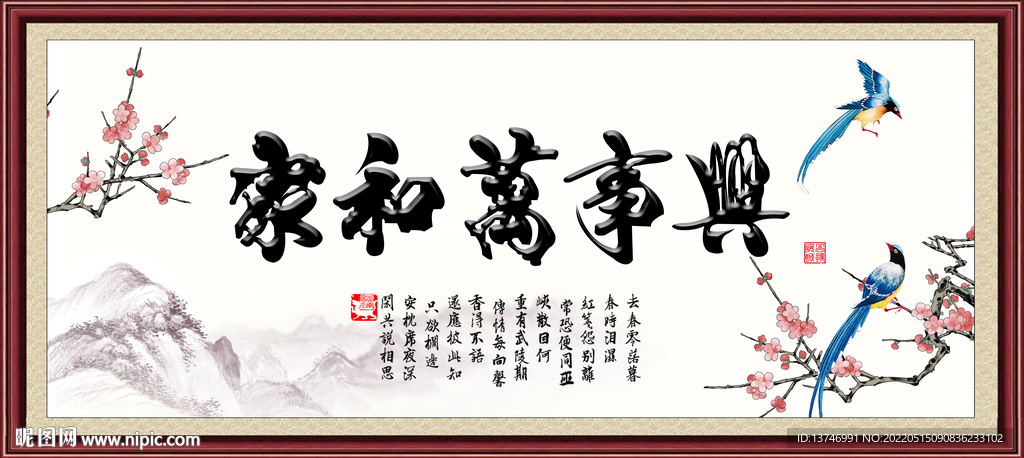 家和萬事興
去春零落暮
春時泪濕
紅箋怨别離
常恐便同巫
峽散因何
重有武陵期
傳情每向馨
香得不語
還應彼此知
只欲欄邊
安枕席夜深
閑共說相思
昵图网 www.nipic.com
ID:13746991 NO:20220515090836233102